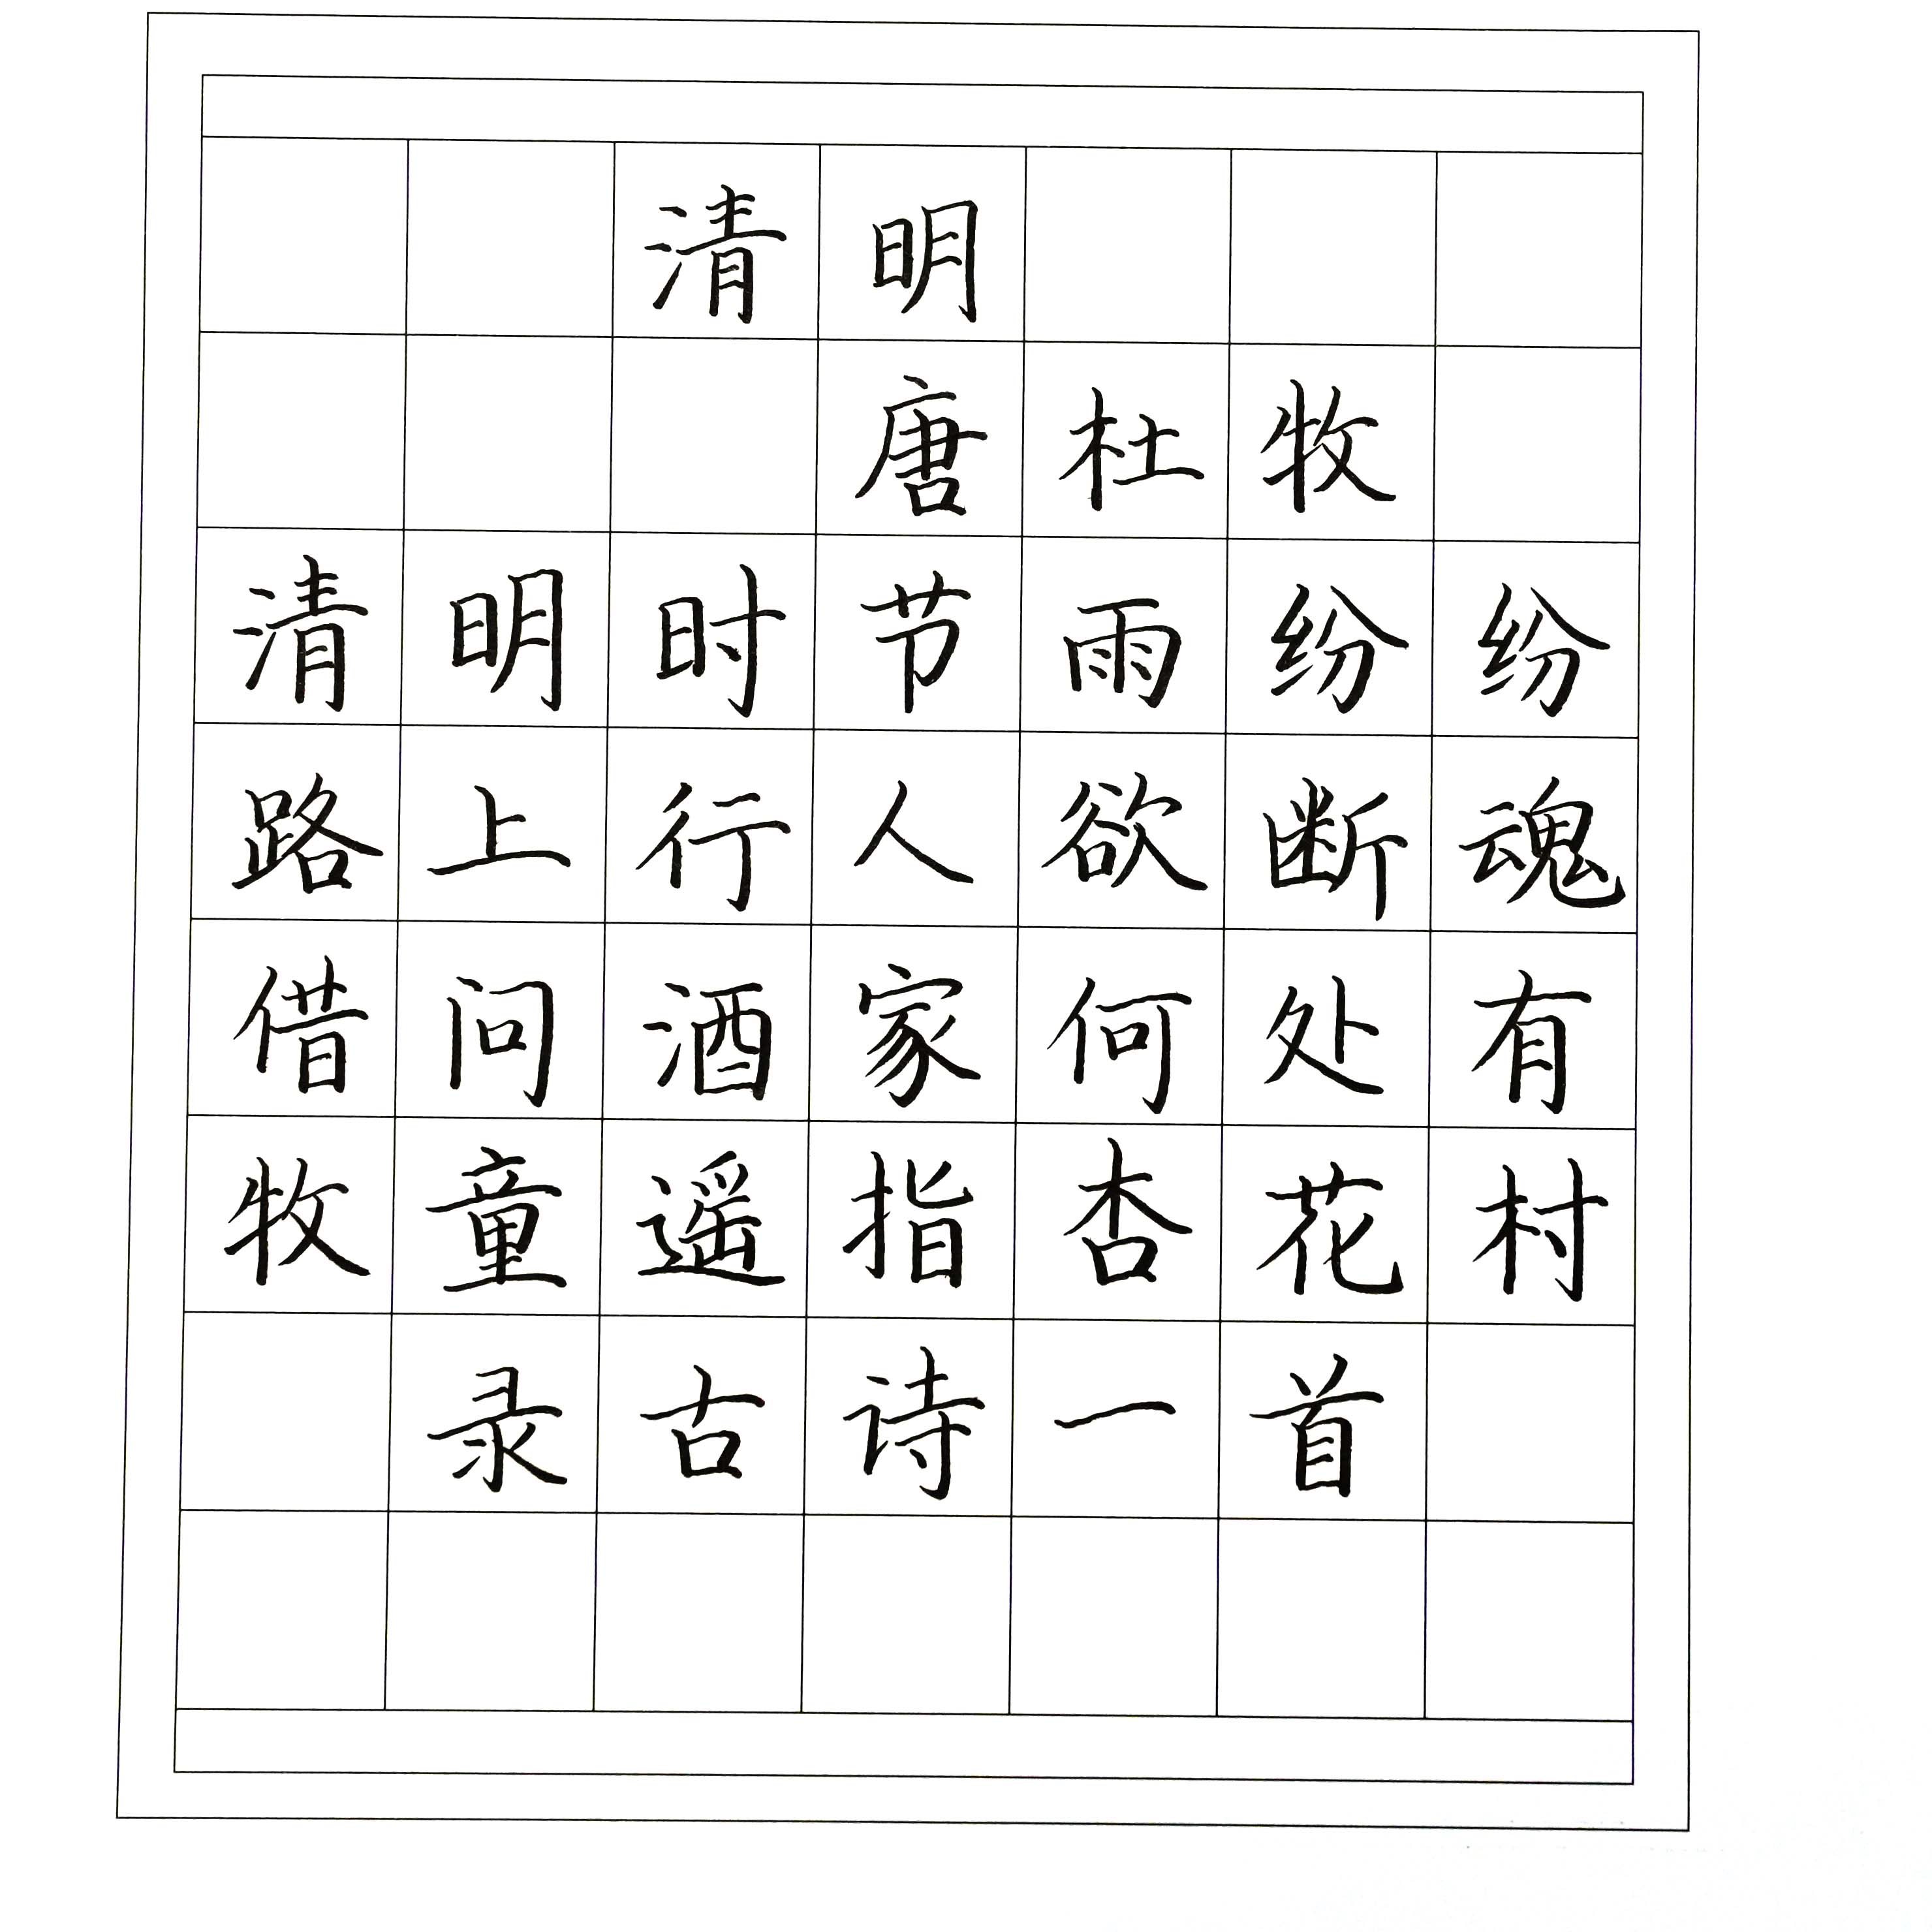 清明
唐杜牧
清明时节雨纷纷
路上行人欲断魂
借问酒家何处有
牧童遥指杏花村
录古诗一首